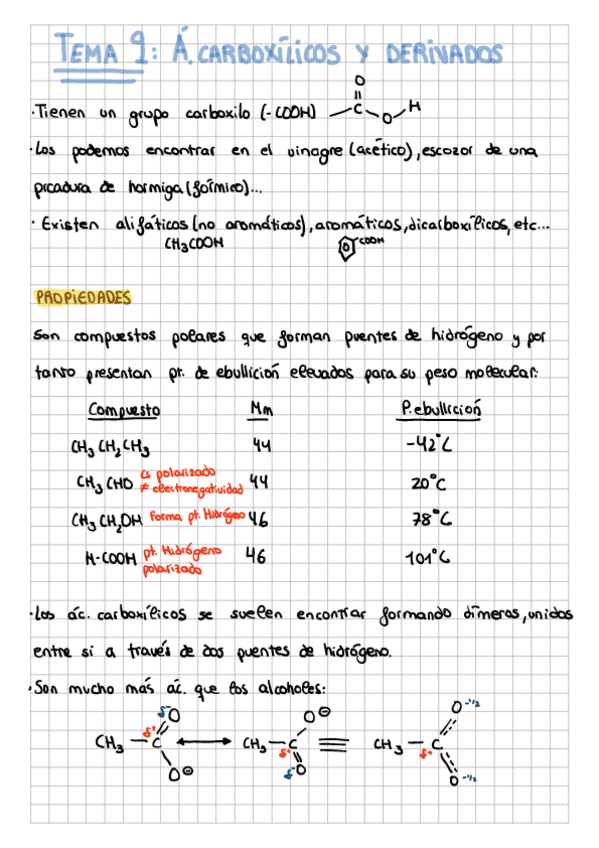 TEMA 9: Á. CARBOXÍLICOS Y DERIVADOS
O
· Tienen un grupo carboxilo (-COOH) C O H
· Los podemos encontrar en el vinagre (acético), escozor de una
picadura de hormiga (fórmico)...
· Existen alifáticos (no aromáticos), aromáticos, dicarboxílicos, etc...
CH3COOH COOH
PROPIEDADES
Son compuestos polares que forman puentes de hidrógeno y por
tanto presentan pt. de ebullición elevados para su peso molecular:
Compuesto Mm P. ebullición
CH3CH2CH3 44 -42°C
CH3CHO es polarizado ≠ electronegatividad 44 20°C
CH3CH2OH Forma pt. Hidrógeno 46 78°C
H-COOH pt. Hidrógeno polarizado 46 101°C
· Los ác. carboxílicos se suelen encontrar formando dímeros, unidos
entre sí a través de dos puentes de hidrógeno.
· Son mucho más ác. que los alcoholes:
δ- O O ⊖ O -1/2
CH3 - C δ+ ↔ CH3 - C δ+ ≡ CH3 - C δ+
O ⊖ δ- O O -1/2